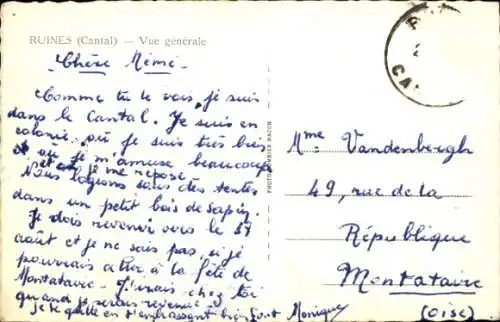 RUINES (Cantal) — Vue générale
Chère Mémé
Comme tu le vois, je suis
dans le Cantal. Je suis en
colonie, où je suis très bien
et où je m'amuse beaucoup
et je me repose.
Nous logeons sous des tentes
dans un petit bois de sapin.
Je dois revenir vers le
août et je ne sais pas si je
pourrais aller à la fête de
Montataire. J'irais chez toi
quand je serais revenue.
je te quitte en t'embrassant bien fort Monique
Mme Vandenbergh
49, rue de la
République
Montataire
(Oise)
CA